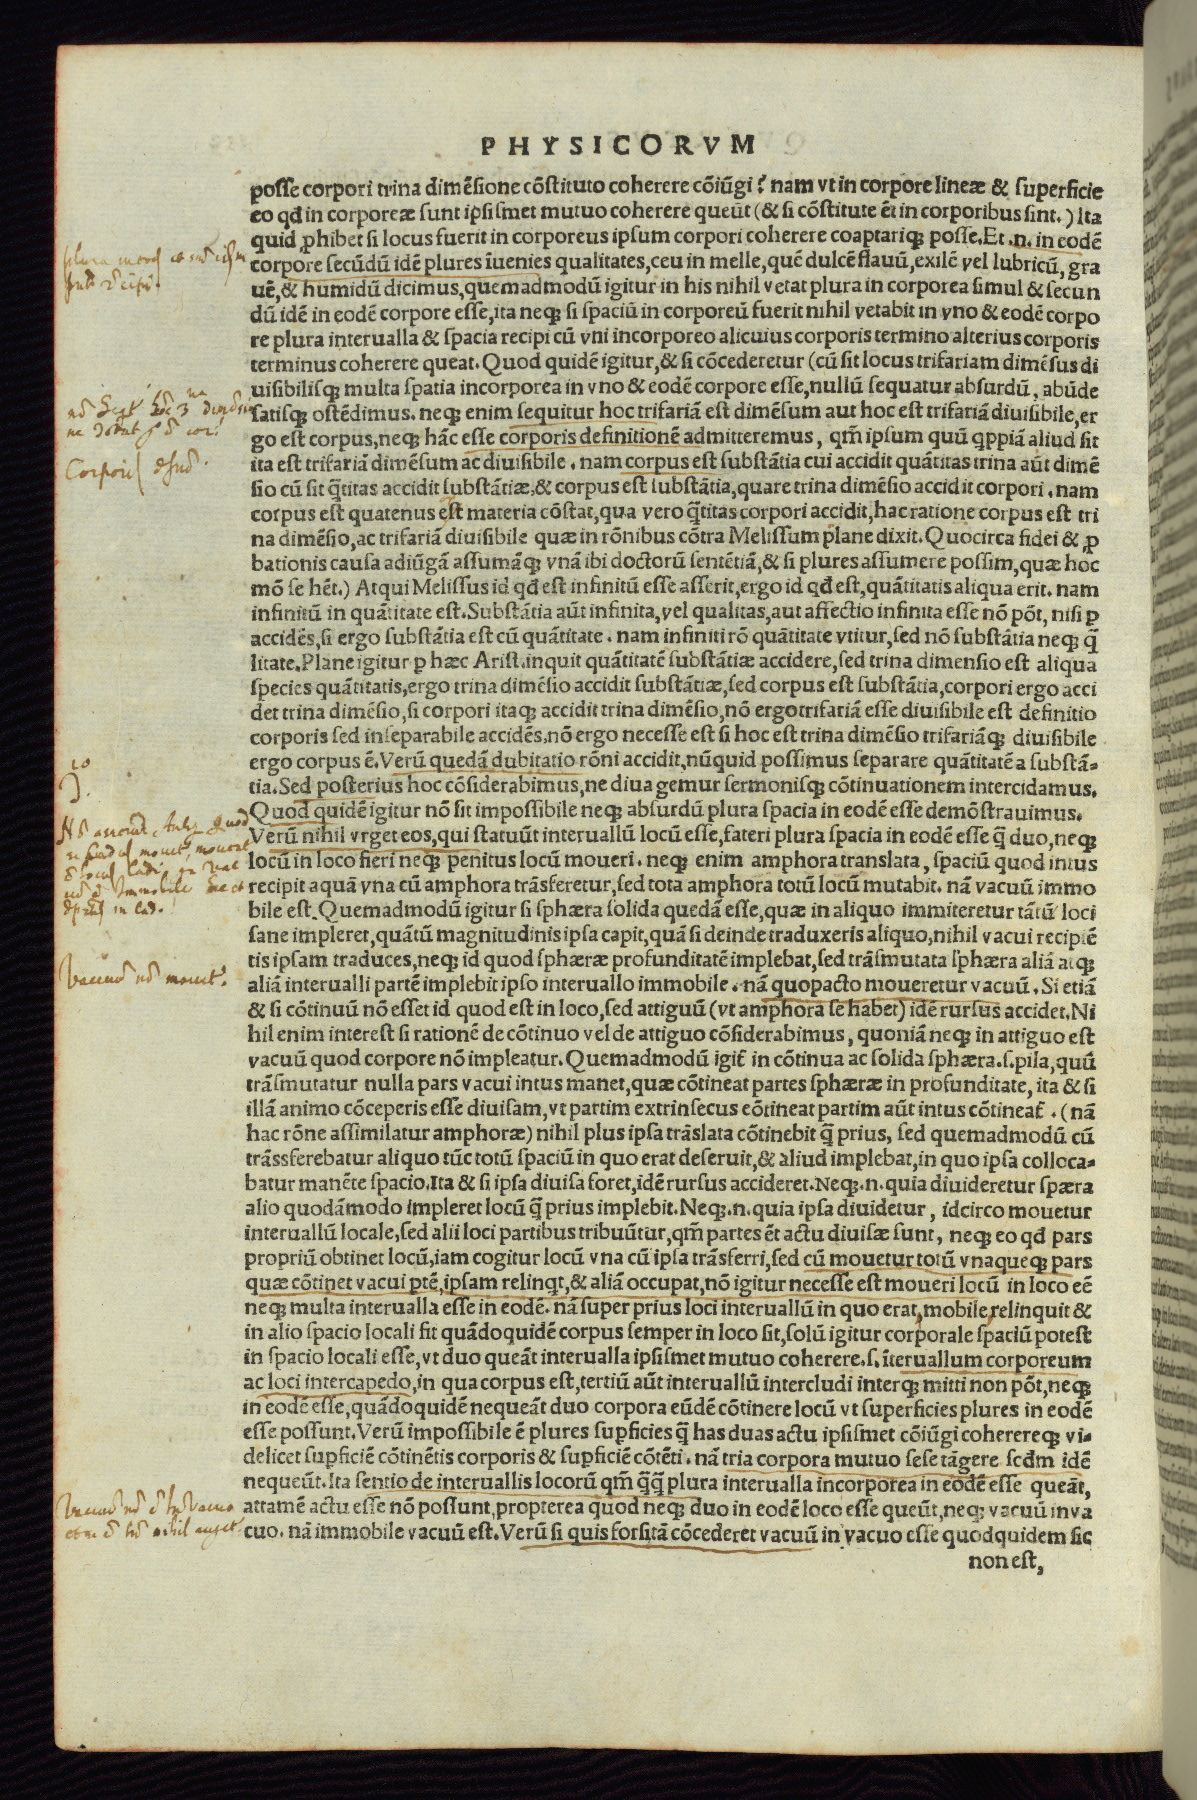 PHYSICORVM
posse corpori trina dimēsione cōstituto coherere cōiūgi? nam vt in corpore lineæ & superficie
eo qđ in corporeæ sunt ipsismet mutuo coherere queūt (& si cōstitute ēt in corporibus sint.) Ita
quid ꝓhibet si locus fuerit in corporeus ipsum corpori coherere coaptariqꝫ posse. Et .n. in eodē
corpore secūdū idē plures īuenies qualitates, ceu in melle, quē dulcē flauū, exilē vel lubricū, gra
uē, & humidū dicimus, quemadmodū igitur in his nihil vetat plura in corporea simul & secun
dū idē in eodē corpore esse, ita neqꝫ si spaciū in corporeū fuerit nihil vetabit in vno & eodē corpo
re plura interualla & spacia recipi cū vni incorporeo alicuius corporis termino alterius corporis
terminus coherere queat. Quod quidē igitur, & si cōcederetur (cū sit locus trifariam dimēsus di
uisibilisqꝫ multa spatia incorporea in vno & eodē corpore esse, nullū sequatur absurdū, abūde
satisqꝫ ostēdimus. neqꝫ enim sequitur hoc trifariā est dimēsum aut hoc est trifariā diuisibile, er
go est corpus, neqꝫ hāc esse corporis definitionē admitteremus, qm̄ ipsum quū qꝓpiā aliud sit
ita est trifariā dimēsum ac diuisibile. nam corpus est substātia cui accidit quātitas trina aūt dimē
sio cū sit q̄titas accidit substātiæ, & corpus est substātia, quare trina dimēsio accidit corpori. nam
corpus est quatenus est materia cōstat, qua vero q̄titas corpori accidit, hac ratione corpus est tri
na dimēsio, ac trifariā diuisibile quæ in rōnibus cōtra Melissum plane dixit. Quocirca fidei & ꝓ
bationis causa adiūgā assumāqꝫ vnā ibi doctorū sentētiā, & si plures assumere possim, quæ hoc
mō se hēt.) Atqui Melissus id qđ est infinitū esse asserit, ergo id qđ est, quātitatis aliqua erit. nam
infinitū in quātitate est. Substātia aūt infinita, vel qualitas, aut affectio infinita esse nō pōt, nisi ꝑ
accidēs, si ergo substātia est cū quātitate. nam infiniti rō quātitate vtitur, sed nō substātia neqꝫ q̄
litate. Plane igitur ꝑ hæc Arist. inquit quātitatē substātiæ accidere, sed trina dimensio est aliqua
species quātitatis, ergo trina dimēsio accidit substātiæ, sed corpus est substātia, corpori ergo acci
det trina dimēsio, si corpori itaqꝫ accidit trina dimēsio, nō ergo trifariā esse diuisibile est definitio
corporis sed inseparabile accidēs. nō ergo necesse est si hoc est trina dimēsio trifariāqꝫ diuisibile
ergo corpus ē. Verū quedā dubitatio rōni accidit, nūquid possimus separare quātitatē a substā-
tia. Sed posterius hoc cōsiderabimus, ne diua gemur sermonisqꝫ cōtinuationem intercidamus.
Quod quidē igitur nō sit impossibile neqꝫ absurdū plura spacia in eodē esse demōstrauimus.
Verū nihil vrget eos, qui statuūt interuallū locū esse, fateri plura spacia in eodē esse q̄ duo, neqꝫ
locū in loco fieri neqꝫ penitus locū moueri. neqꝫ enim amphora translata, spaciū quod intus
recipit aquā vna cū amphora trāsferetur, sed tota amphora totū locū mutabit. nā vacuū immo
bile est. Quemadmodū igitur si sphæra solida quedā esse, quæ in aliquo immiteretur tātū loci
sane impleret, quātū magnitudinis ipsa capit, quā si deinde traduxeris aliquo, nihil vacui recipiē
tis ipsam traduces, neqꝫ id quod sphæræ profunditatē implebat, sed trāsmutata sphæra aliā atqꝫ
aliā interualli partē implebit ipso interuallo immobile. nā quopacto moueretur vacuū. Si etiā
& si cōtinuū nō esset id quod est in loco, sed attiguū (vt amphora se habet) idē rursus accidet. Ni
hil enim interest si rationē de cōtinuo vel de attiguo cōsiderabimus, quoniā neqꝫ in attiguo est
vacuū quod corpore nō impleatur. Quemadmodū igit̄ in cōtinua ac solida sphæra .s. pila, quū
trāsmutatur nulla pars vacui intus manet, quæ cōtineat partes sphæræ in profunditate, ita & si
illā animo cōceperis esse diuisam, vt partim extrinsecus cōtineat partim aūt intus cōtineat̄. (nā
hac rōne assimilatur amphoræ) nihil plus ipsa trāslata cōtinebit q̄ prius, sed quemadmodū cū
trāssferebatur aliquo tūc totū spaciū in quo erat deseruit, & aliud implebat, in quo ipsa colloca-
batur manēte spacio. Ita & si ipsa diuisa foret, idē rursus accideret. Neqꝫ .n. quia diuideretur spæra
alio quodāmodo impleret locū q̄ prius implebit. Neqꝫ .n. quia ipsa diuidetur, idcirco mouetur
interuallū locale, sed alii loci partibus tribuūtur, qm̄ partes ēt actu diuisæ sunt, neqꝫ eo qđ pars
propriū obtinet locū, iam cogitur locū vna cū ipsa trāsferri, sed cū mouetur totū vnaqueqꝫ pars
quæ cōtinet vacui ptē, ipsam relinqt, & aliā occupat, nō igitur necesse est moueri locū in loco eē
neqꝫ multa interualla esse in eodē. nā super prius loci interuallū in quo erat, mobile relinquit &
in alio spacio locali fit quādoquidē corpus semper in loco sit, solū igitur corporale spaciū potest
in spacio locali esse, vt duo queāt interualla ipsismet mutuo coherere. s. īteruallum corporeum
ac loci intercapedo, in qua corpus est, tertiū aūt interuallū intercludi interqꝫ mitti non pōt, neqꝫ
in eodē esse, quādoquidē nequeāt duo corpora eūdē cōtinere locū vt superficies plures in eodē
esse possunt. Verū impossibile ē plures supficies q̄ has duas actu ipsismet cōiūgi coherereqꝫ vi-
delicet supficiē cōtinētis corporis & supficiē cōtēti. nā tria corpora mutuo sese tāgere scđm idē
nequeūt. Ita sentio de interuallis locorū qm̄ q̄q̄ plura interualla incorporea in eodē esse queāt,
attamē actu esse nō possunt, propterea quod neqꝫ duo in eodē loco esse queūt, neqꝫ vacuū in va
cuo. nā immobile vacuū est. Verū si quis forsitā cōcederet vacuū in vacuo esse quodquidem sic
non est,
Corpori
10
vacuū nō mouet.